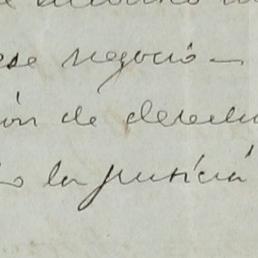 ese negocio —
ón de derech
la justicia